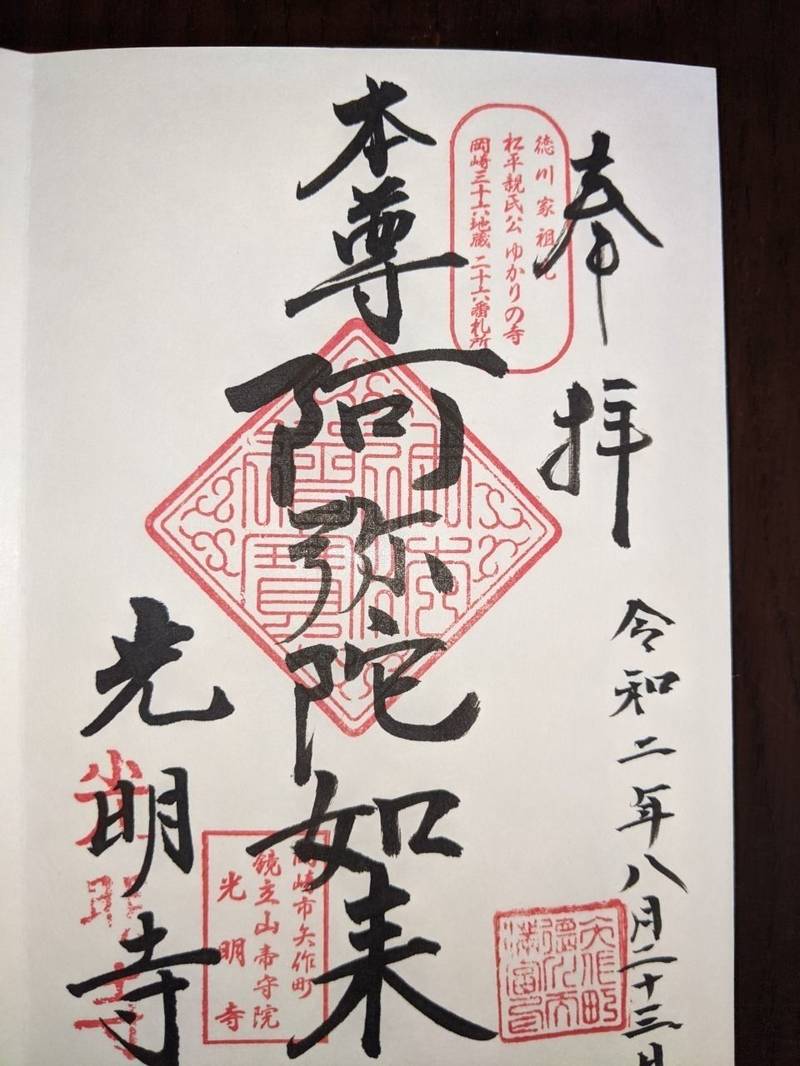 奉拝
令和二年八月二十三日
徳川家祖
松平親氏公ゆかりの寺
岡崎三十六地蔵 二十六番札所
本尊
阿弥陀如来
岡崎市矢作町
鏡立山帝守院
光明寺
光明寺
光明寺